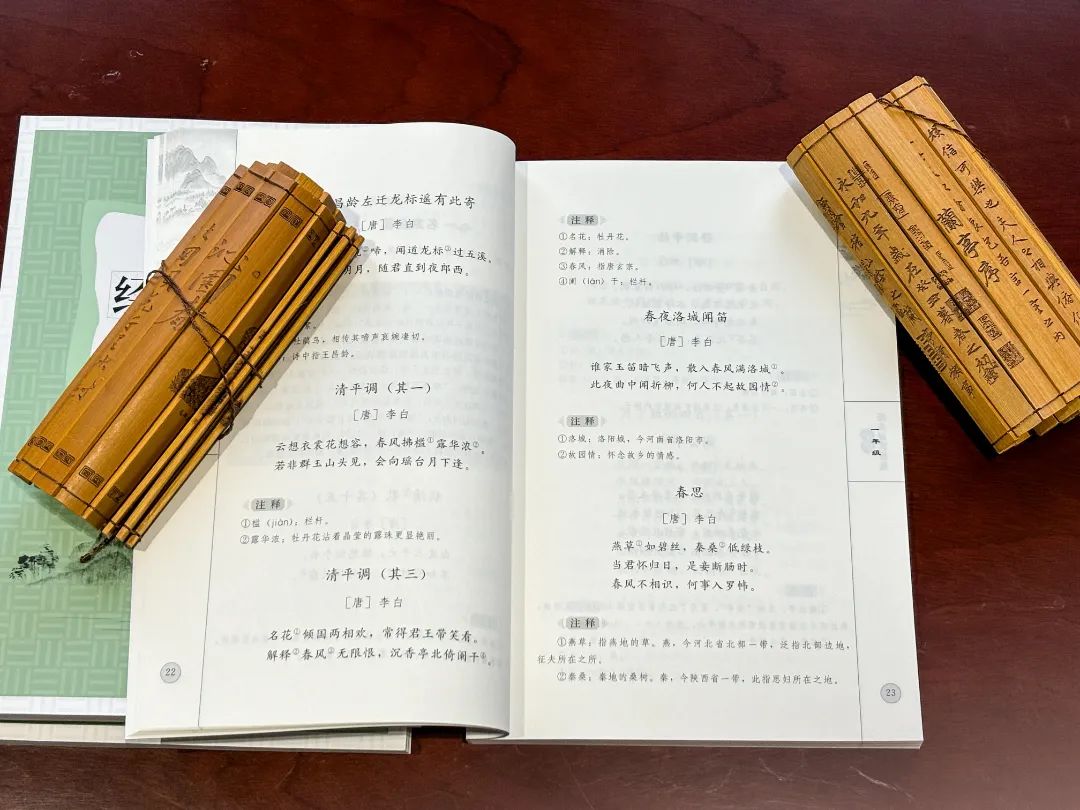 昌龄左迁龙标遥有此寄
［唐］李白
啼，闻道龙标②过五溪，
明月，随君直到夜郎西。
鸟，相传其啼声哀婉凄切。
：诗中指王昌龄。
清平调（其一）
［唐］李白
云想衣裳花想容，春风拂槛①露华浓②。
若非群玉山头见，会向瑶台月下逢。
注释
①槛（jiàn）：栏杆。
②露华浓：牡丹花沾着晶莹的露珠更显艳丽。
清平调（其三）
［唐］李白
名花①倾国两相欢，常得君王带笑看。
解释②春风③无限恨，沉香亭北倚阑干④。
22
注释
①名花：牡丹花。
②解释：消除。
③春风：指唐玄宗。
④阑（lán）干：栏杆。
春夜洛城闻笛
［唐］李白
谁家玉笛暗飞声，散入春风满洛城①。
此夜曲中闻折柳，何人不起故园情②。
注释
①洛城：洛阳城，今河南省洛阳市。
②故园情：怀念故乡的情感。
春思
［唐］李白
燕草①如碧丝，秦桑②低绿枝。
当君怀归日，是妾断肠时。
春风不相识，何事入罗帏。
注释
①燕草：指燕地的草。燕，今河北省北部一带，泛指北部边地，
征夫所在之所。
②秦桑：秦地的桑树。秦，今陕西省一带，此指思妇所在之地。
一年级
23
蘭亭序
永和九年歲在癸丑暮春之初